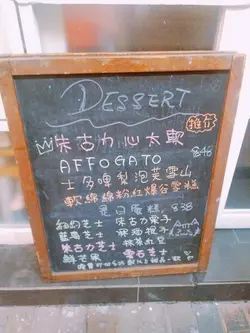 DESSERT
推介
朱古力心太軟 $48
AFFOGATO
士多啤梨泡芙雪山
軟綿綿粉紅爆谷蛋糕
是日蛋糕 $38
紐約芝士 朱古力栗子
藍莓芝士
朱古力芝士 抹茶紅豆
鮮芒果 雲石芝士